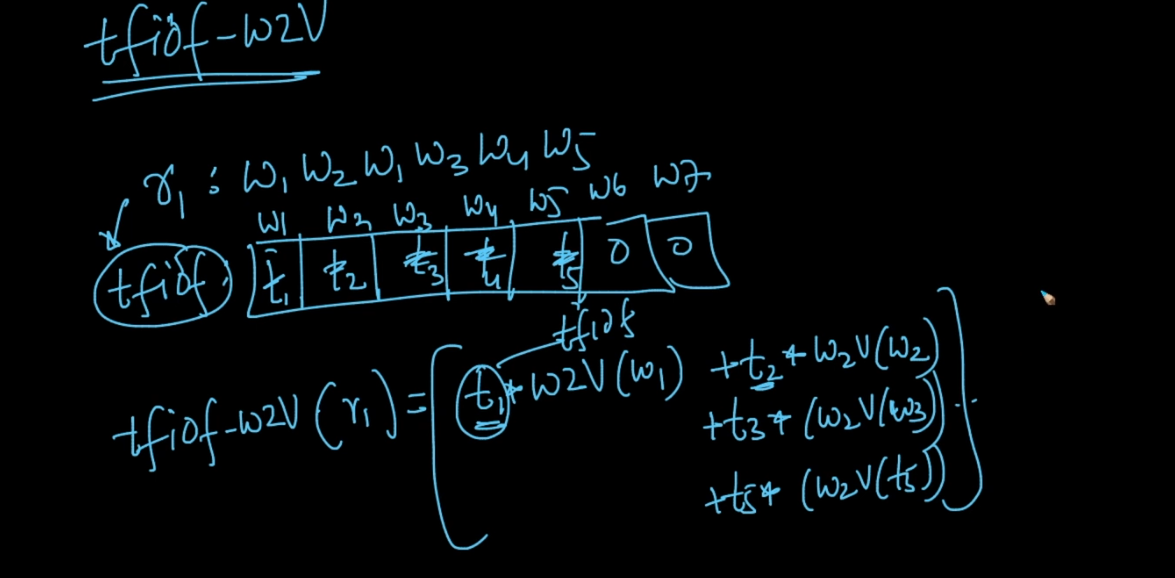 tfidf-w2V
r₁ : w₁ w₂ w₁ w₃ w₄ w₅
w1 w2 w3 w4 w5 w6 w7
tfidf : t₁ t₂ t₃ t₄ t₅ 0 0
tfidf
tfidf-w2V (r₁) = [ t₁ * w2V (w₁) + t₂ * w₂V (w₂)
+ t₃ * (w₂V (w₃))
+ t₅ * (w₂V (t₅)) ]